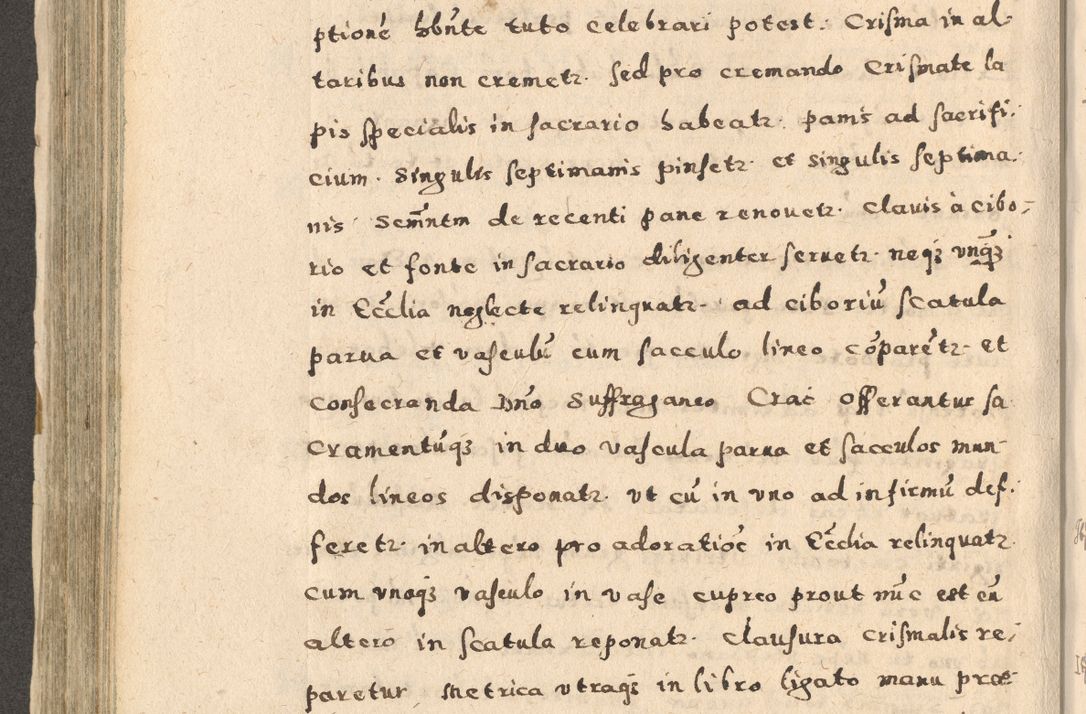 ptionē hb̄nte tuto celebrari potest. Crisma in al-
taribus non cremetr. sed pro cremando Crismate la
pis specialis in sacrario habeatr. panis ad sacrifi-
cium. Singulis septimanis pinsetr. et singulis septima-
nis de recenti pane renouetr. Clauis à cibo-
rio et fonte in sacrario diligenter seruetr. neq; vnq̄;
in Eccl̄ia neglecte relinquatr. ad ciboriū scatula
parua et vasculū cum sacculo lineo cōparētr. et
consecranda Dn̄o Suffraganeo Crac̄ Offerantur sa
cramentūq; in duo vascula parua et sacculos mun-
dos lineos disponatr. vt cū in vno ad infirmū def-
feretr. in altero pro adoratiōe in Eccl̄ia relinquatr.
cum vnoq; vasculo in vase cupreo prout nūc est cū
altero in scatula reponatr. Clausura crismalis re-
paretur Metrica vtraq; in libro ligato manu proe-